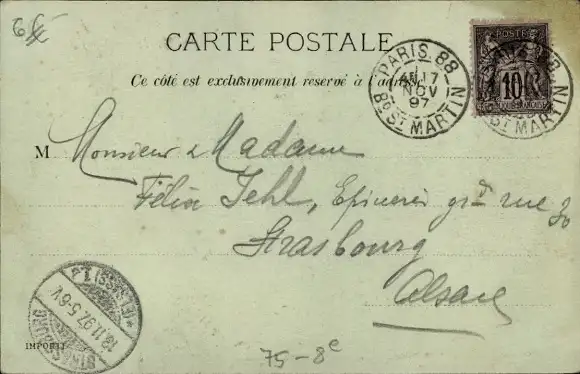 CARTE POSTALE
Ce côté est exclusivement reservé à l'adresse
POSTES
10
PARIS 88
17
NOV
97
Bd ST MARTIN
M Monsieur & Madame
Félix Jehl, Epicerie grd rue 30
Strasbourg
Alsace
STRASSBURG
18.11.97. 5-6 V.
(ELSASS) 1.
75-8e